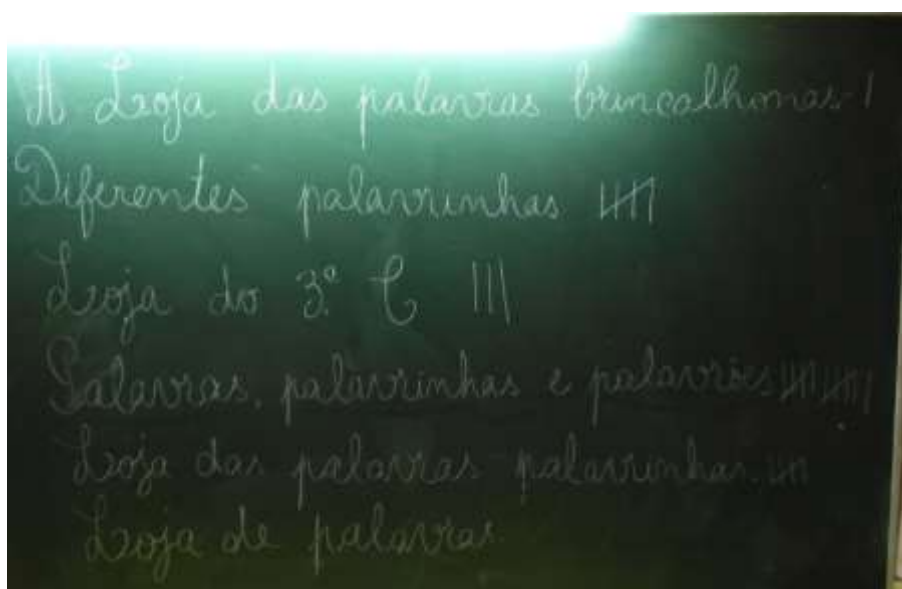 A Loja das palavras brincalhonas - |
Diferentes palavrinhas
Loja do 3.º C |||
Palavras, palavrinhas e palavrões
Loja das palavras palavrinhas.
Loja de palavras.